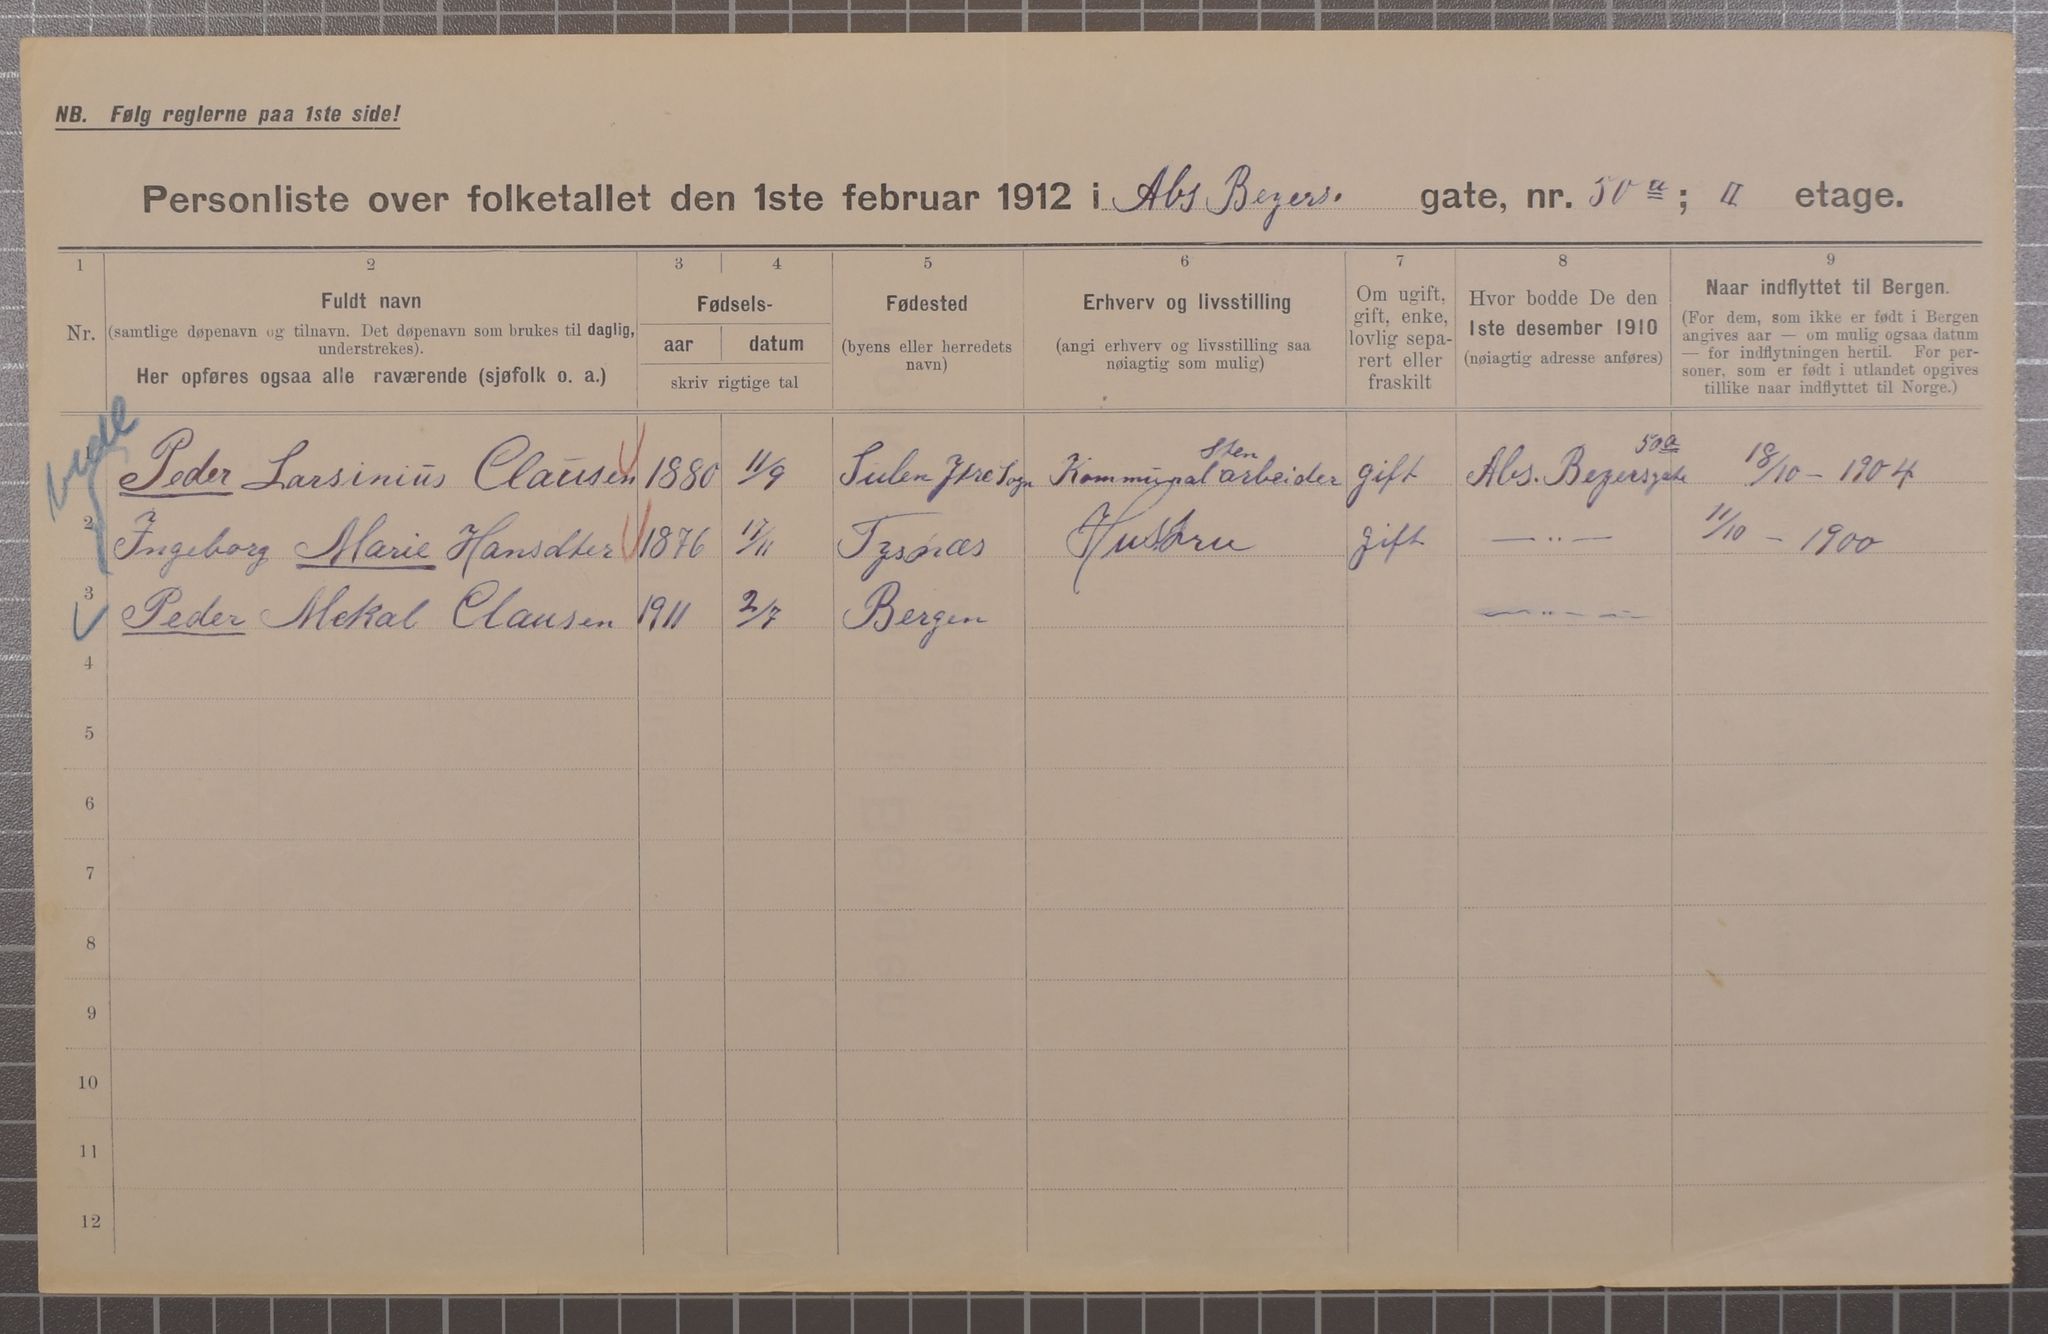 NB. Følg reglerne paa 1ste side!
Personliste over folketallet den 1ste februar 1912 i Abs Beyers. gate, nr. 50 a; II etage.
1 2 3 4 5 6 7 8 9
Nr.
Fuldt navn
(samtlige døpenavn og tilnavn. Det døpenavn som brukes til daglig, understrekes).
Her opføres ogsaa alle raværende (sjøfolk o. a.)
Fødsels-
aar datum
skriv rigtige tal
Fødested
(byens eller herredets
navn)
Erhverv og livsstilling
(angi erhverv og livsstilling saa
nøiagtig som mulig)
Om ugift,
gift, enke,
lovlig sepa-
rert eller
fraskilt
Hvor bodde De den
1ste desember 1910
(nøiagtig adresse anføres)
Naar indflyttet til Bergen.
(For dem, som ikke er født i Bergen
angives aar — om mulig ogsaa datum
— for indflytningen hertil. For per-
soner, som er født i utlandet opgives
tillike naar indflyttet til Norge.)
Peder Larsinius Clausen 1880 11/9 Sulen Ytre Sogn Kommunal Sten arbeider gift Abs. Beyersgate 50a 18/10 - 1904
2 Ingeborg Marie Hansdter 1876 17/11 Tysnæs Hustru gift — " — 11/10 - 1900
3 Peder Mekal Clausen 1911 2/7 Bergen — " — —
4
5
6
7
8
9
10
11
12